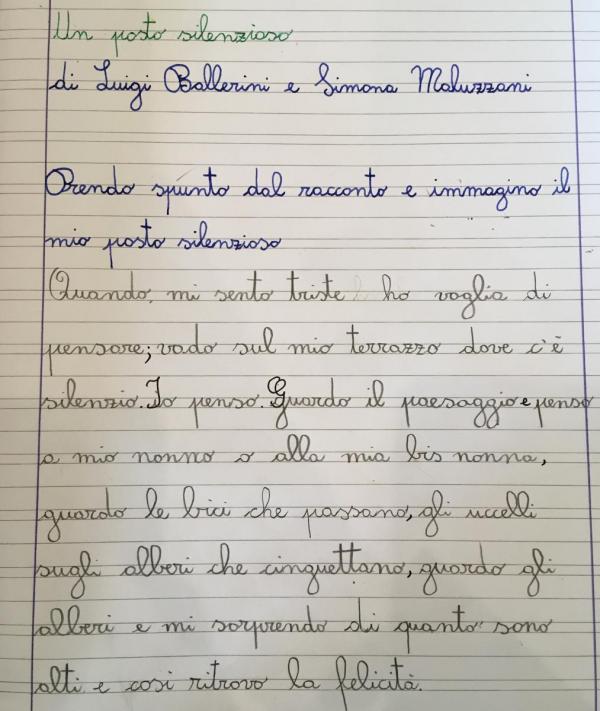 Un posto silenzioso
di Luigi Ballerini e Simona Maluzzani
Prendo spunto dal racconto e immagino il
mio posto silenzioso
Quando, mi sento triste ho voglia di
pensare; vado sul mio terrazzo dove c'è
silenzio. Io penso. Guardo il paesaggio e penso
a mio nonno o alla mia bis nonna,
guardo le bici che passano, gli uccelli
sugli alberi che cinguettano, guardo gli
alberi e mi sorprendo di quanto sono
alti e così ritrovo la felicità.